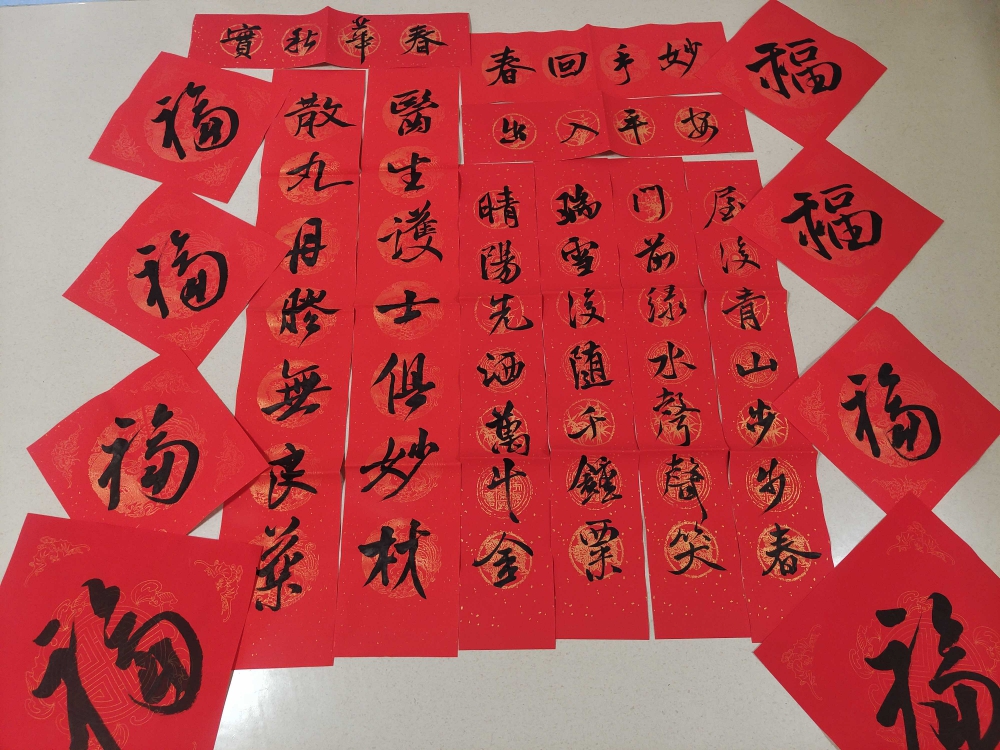 春華秋實
妙手回春
出入平安
醫生護士俱妙材
散丸丹膠無良藥
屋後青山步步春
門前绿水聲聲笑
瑞雪後随千鍾粟
晴陽先洒萬斗金
福
福
福
福
福
福
福
福